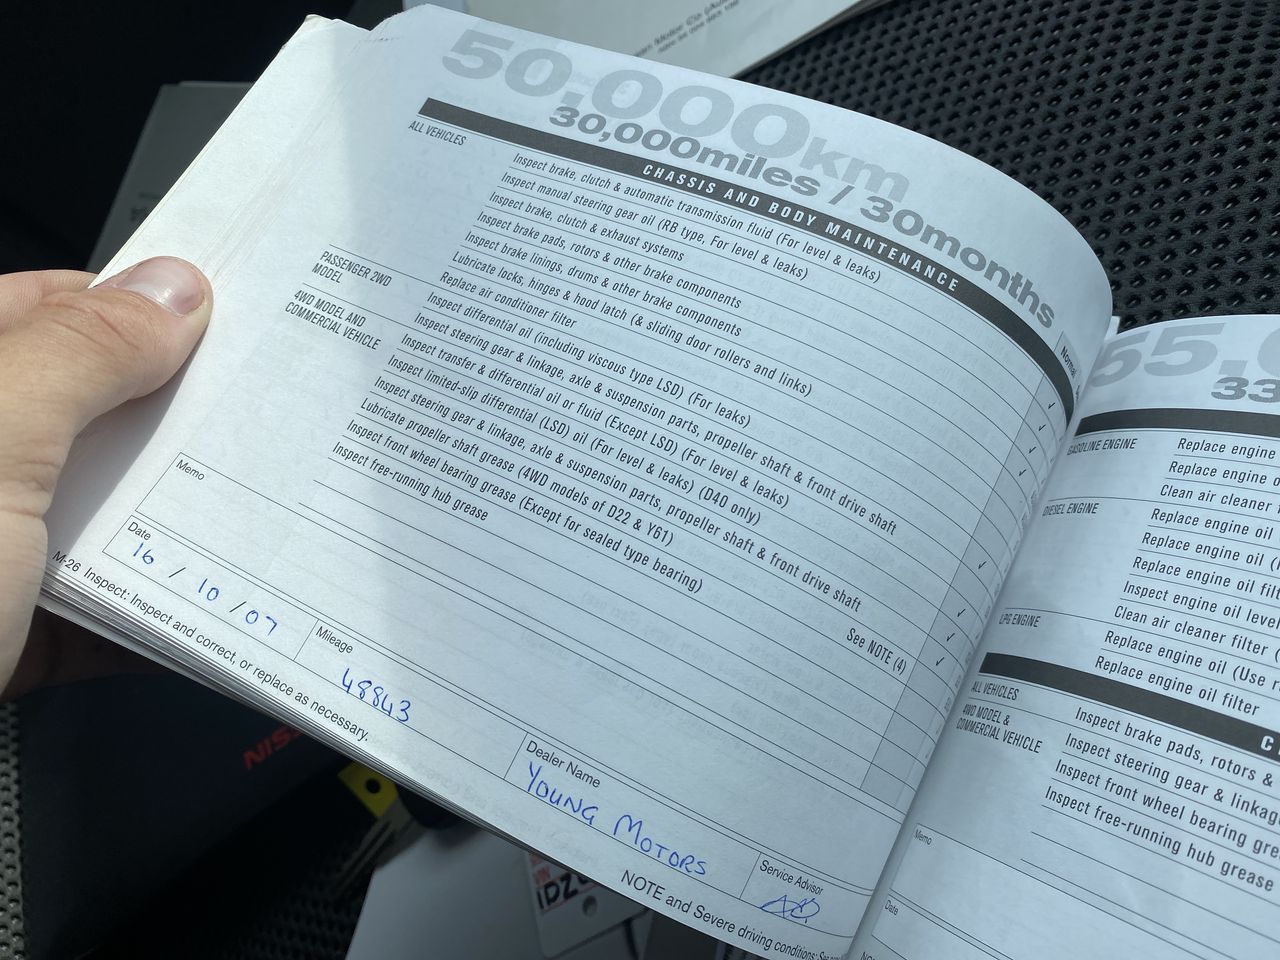 50,000km
30,000miles / 30months
Normal
CHASSIS AND BODY MAINTENANCE
ALL VEHICLES
Inspect brake, clutch & automatic transmission fluid (For level & leaks)
Inspect manual steering gear oil (RB type, For level & leaks)
Inspect brake, clutch & exhaust systems
Inspect brake pads, rotors & other brake components
Inspect brake linings, drums & other brake components
Lubricate locks, hinges & hood latch (& sliding door rollers and links)
Replace air conditioner filter
PASSENGER 2WD
MODEL
Inspect differential oil (including viscous type LSD) (For leaks)
Inspect steering gear & linkage, axle & suspension parts, propeller shaft & front drive shaft
4WD MODEL AND
COMMERCIAL VEHICLE
Inspect transfer & differential oil or fluid (Except LSD) (For level & leaks)
Inspect limited-slip differential (LSD) oil (For level & leaks) (D40 only)
Inspect steering gear & linkage, axle & suspension parts, propeller shaft & front drive shaft
Lubricate propeller shaft grease (4WD models of D22 & Y61)
Inspect front wheel bearing grease (Except for sealed type bearing)
See NOTE (4)
Inspect free-running hub grease
Memo
Date
16 / 10 / 07
Mileage
48843
Dealer Name
YOUNG MOTORS
Service Advisor
M-26 Inspect: Inspect and correct, or replace as necessary.
NOTE and Severe driving conditions:
55,
33
GASOLINE ENGINE
Replace engine
Replace engine
Clean air cleaner
DIESEL ENGINE
Replace engine oil
Replace engine oil
Replace engine oil
Inspect engine oil level
Clean air cleaner filter
LPG ENGINE
Replace engine oil (Use
Replace engine oil filter
ALL VEHICLES
Inspect brake pads, rotors &
4WD MODEL &
COMMERCIAL VEHICLE
Inspect steering gear &
Inspect front wheel bearing
Inspect free-running hub grease
Memo
Date
NIS